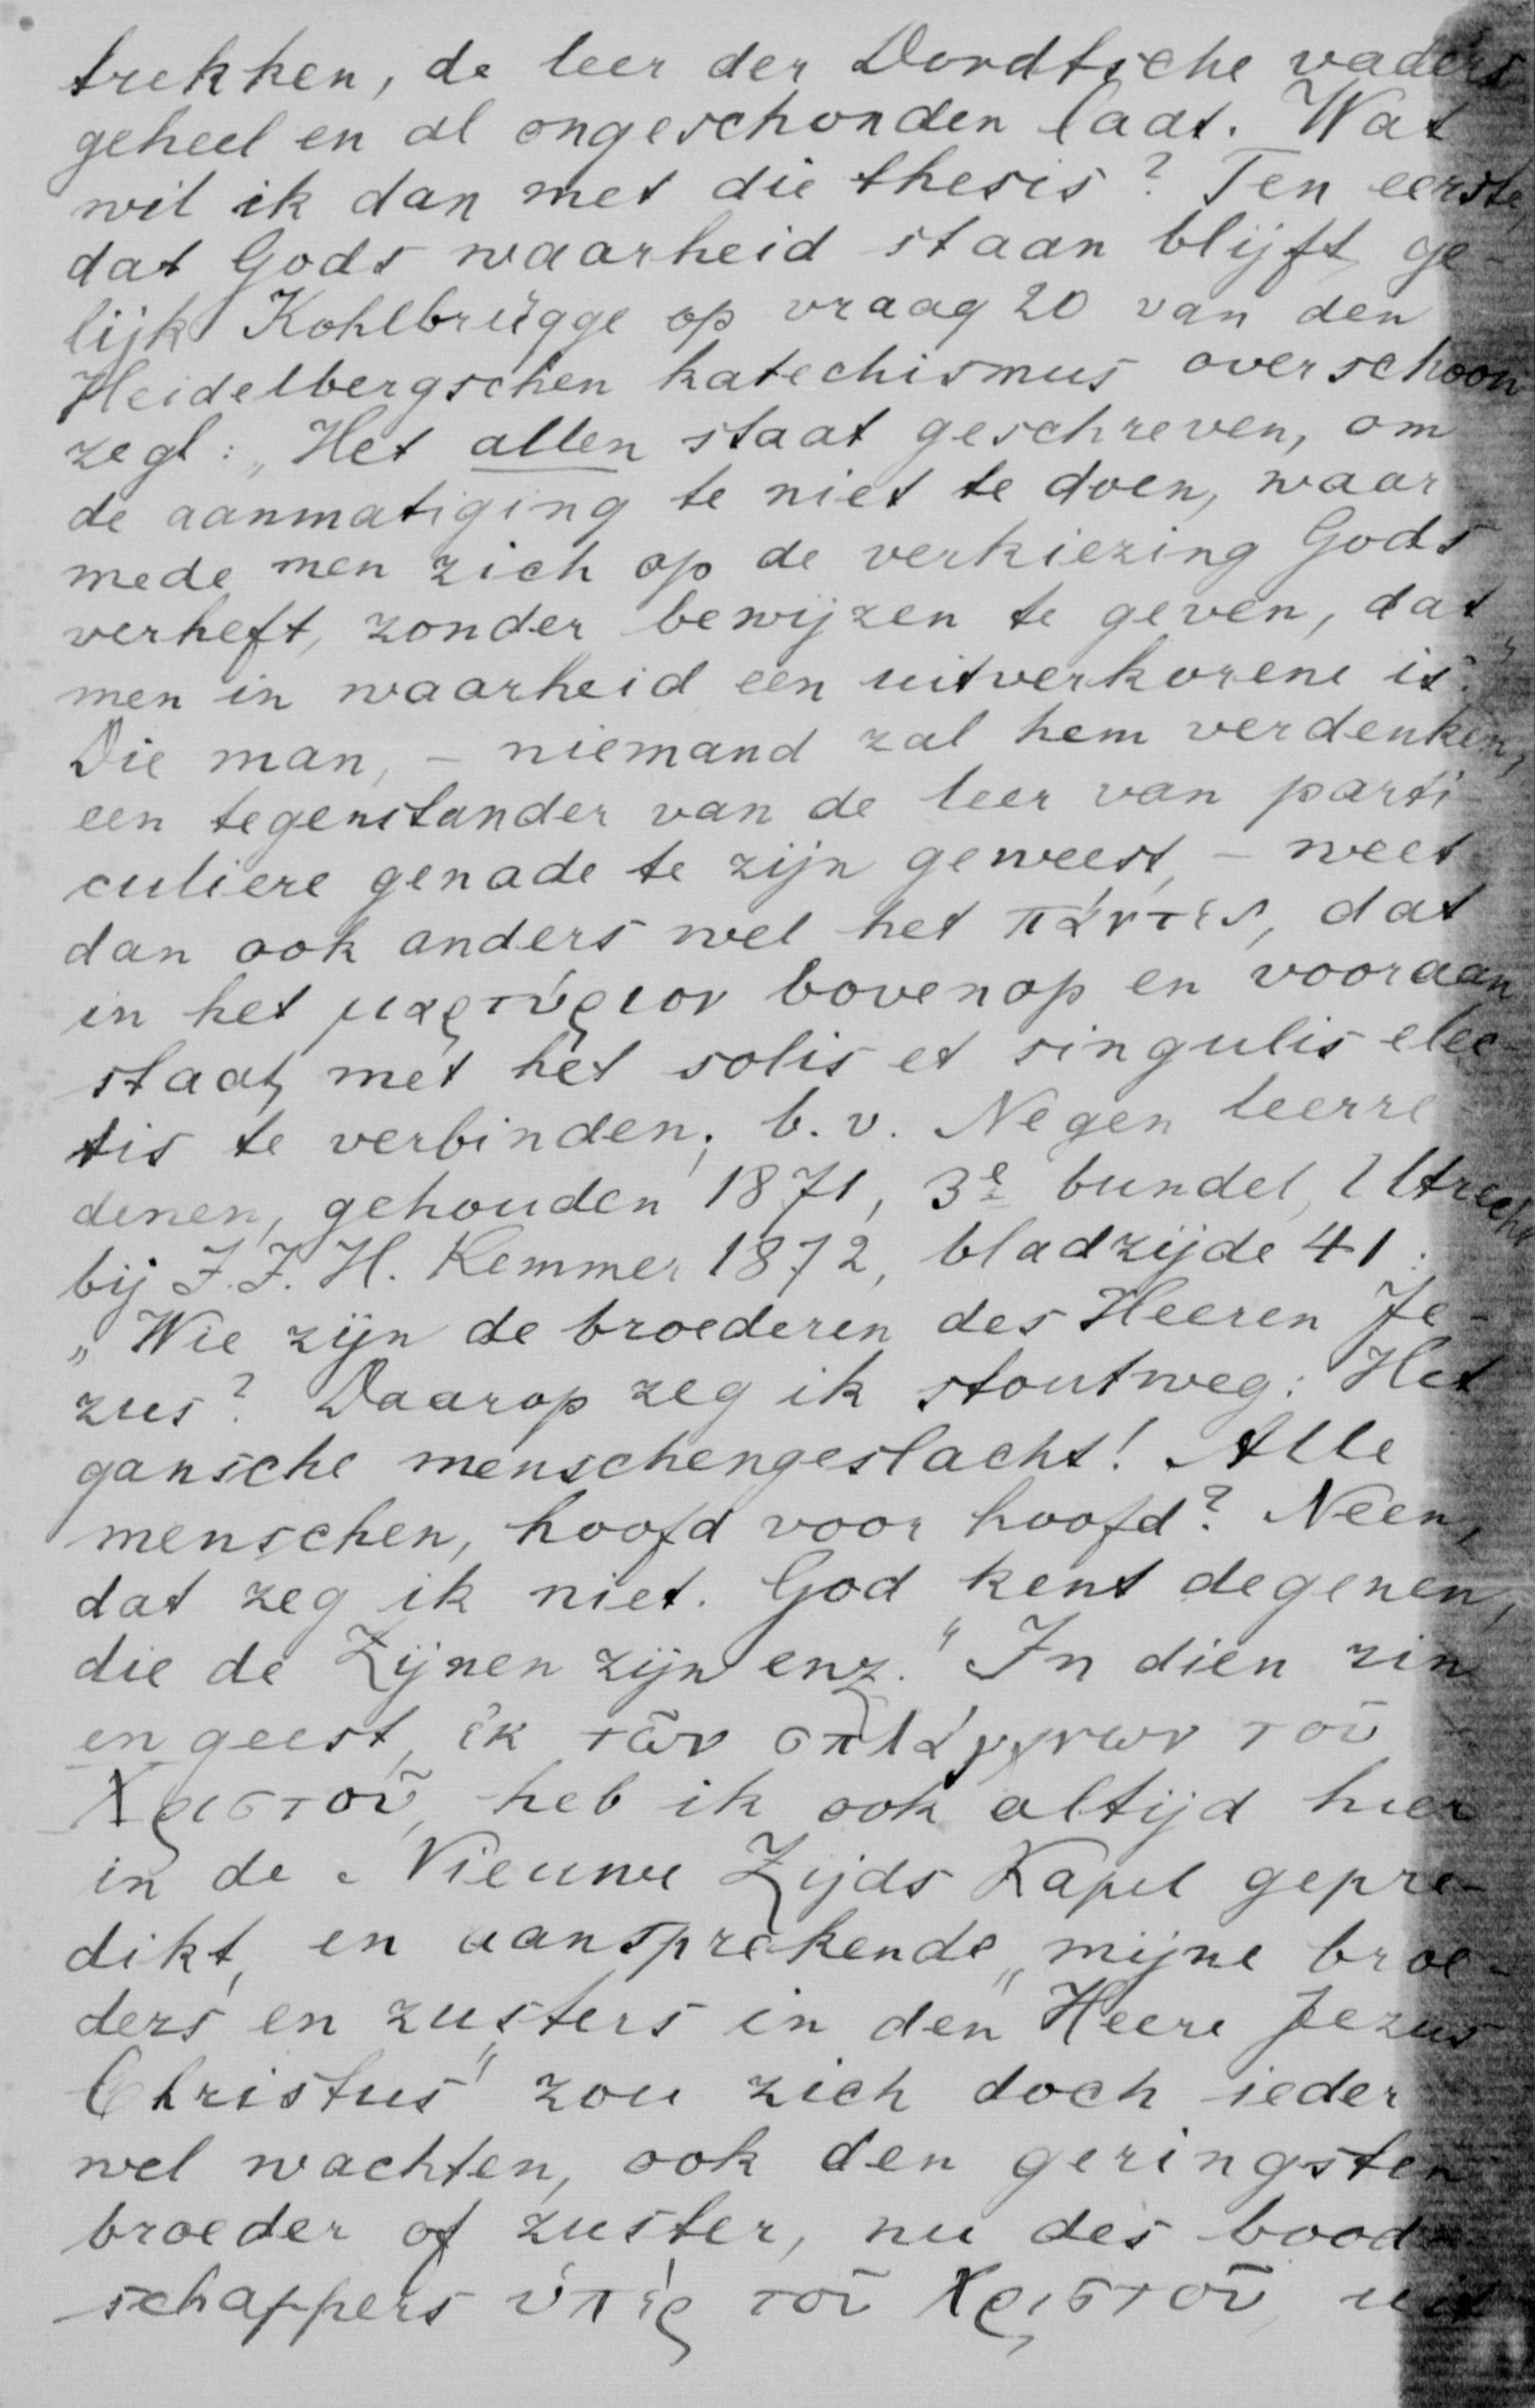 trekken, de leer der Dordtsche vaders
geheel en al ongeschonden laat. Wat
wil ik dan met die thesis? Ten eerste,
dat Gods waarheid staan blijft, ge-
lijk Kohlbrügge op vraag 20 van den
Heidelbergschen katechismus overschoon
zegt: „Het allen staat geschreven, om
de aanmatiging te niet te doen, waar-
mede men zich op de verkiezing Gods
verheft, zonder bewijzen te geven, dat
men in waarheid een uitverkorene is."
Die man, – niemand zal hem verdenken,
een tegenstander van de leer van parti-
culiere genade te zijn geweest, – weet
dan ook anders wel het πάντες, dat
in het μαρτύριον bovenop en vooraan
staat, met het solis et singulis elec-
tis te verbinden; b.v. Negen leerre-
denen, gehouden 1871, 3e bundel, Utrecht
bij J.J.H. Kemmer 1872, bladzijde 41:
„Wie zijn de broederen des Heeren Je-
zus? Daarop zeg ik stoutweg: Het
gansche menschengeslacht! Alle
menschen, hoofd voor hoofd? Neen,
dat zeg ik niet. God kent degenen,
die de Zijnen zijn enz." In dien zin
en geest, ἐκ τῶν σπλάγχνων τοῦ
Χριστοῦ, heb ik ook altijd hier
in de Nieuwe Zijds Kapel gepre-
dikt, en aansprekende „mijne broe-
ders en zusters in den Heere Jezus
Christus" zou zich doch ieder
wel wachten, ook den geringsten
broeder of zuster, nu des bood-
schappers ὑπὲρ τοῦ Χριστοῦ, uit